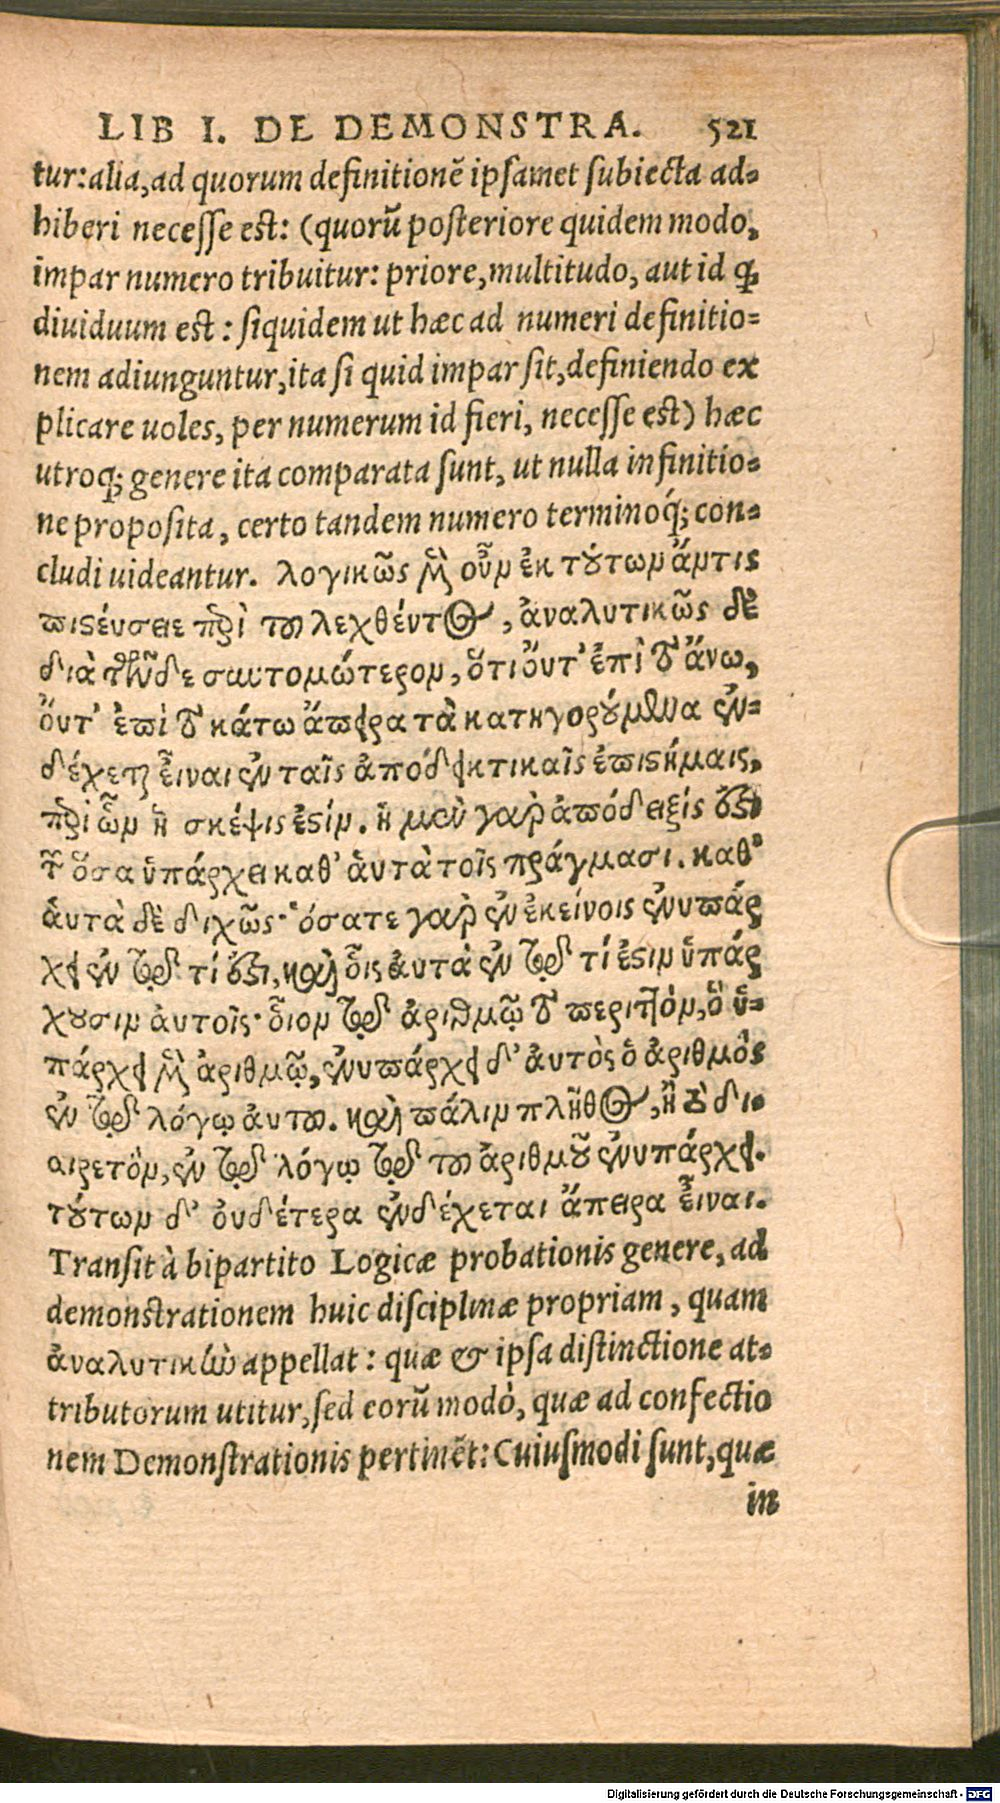 LIB I. DE DEMONSTRA. 521
tur: alia, ad quorum definitionē ipsamet subiecta ad-
hiberi necesse est: (quorū posteriore quidem modo,
impar numero tribuitur: priore, multitudo, aut id q̃
diuiduum est: siquidem ut hæc ad numeri definitio-
nem adiunguntur, ita si quid impar sit, definiendo ex
plicare uoles, per numerum id fieri, necesse est) hæc
utroq; genere ita comparata sunt, ut nulla infinitio-
ne proposita, certo tandem numero terminoq́; con-
cludi uideantur. λογικῶς μὲν οὖν ἐκ τούτων ἄν τις
πιστεύσειε περὶ του λεχθέντος, ἀναλυτικῶς δὲ
διὰ τῶνδε συντομώτερον, ὅτι οὔτ' ἐπὶ τὸ ἄνω,
οὔτ' ἐπὶ τὸ κάτω ἄπειρα τὰ κατηγορούμενα ἐν-
δέχεται εἶναι ἐν ταῖς ἀποδεικτικαῖς ἐπιστήμαις,
περὶ ὧν ἡ σκέψις ἐστίν. ἡ μὲν γὰρ ἀπόδειξίς ἐστι
τῶν ὅσα ὑπάρχει καθ' ἁυτὰ τοῖς πράγμασι. καθ'
ἁυτὰ δὲ διχῶς· ὅσα τε γὰρ ἐν ἐκείνοις ἐνυπάρ
χει ἐν τῷ τί ἐστι, καὶ οἷς ἀυτὰ ἐν τῷ τί ἐστιν ὑπάρ
χουσιν ἀυτοῖς· οἷον τῷ ἀριθμῷ τὸ περιττὸν, ὃ ὑ-
πάρχει μὲν ἀριθμῷ, ἐνυπάρχει δ' ἀυτὸς ὁ ἀριθμὸς
ἐν τῷ λόγῳ ἀυτου. καὶ πάλιν πλῆθος, ἢ τὸ δι-
αιρετὸν, ἐν τῷ λόγῳ τῷ του ἀριθμοῦ ἐνυπάρχει.
τούτων δ' ὀυδέτερα ἐνδέχεται ἄπειρα εἶναι.
Transit à bipartito Logicæ probationis genere, ad
demonstrationem huic disciplinæ propriam, quam
ἀναλυτικὴν appellat: quæ & ipsa distinctione at-
tributorum utitur, sed eorū modò, quæ ad confectio
nem Demonstrationis pertinēt: Cuiusmodi sunt, quæ
in
Digitalisierung gefördert durch die Deutsche Forschungsgemeinschaft - DFG